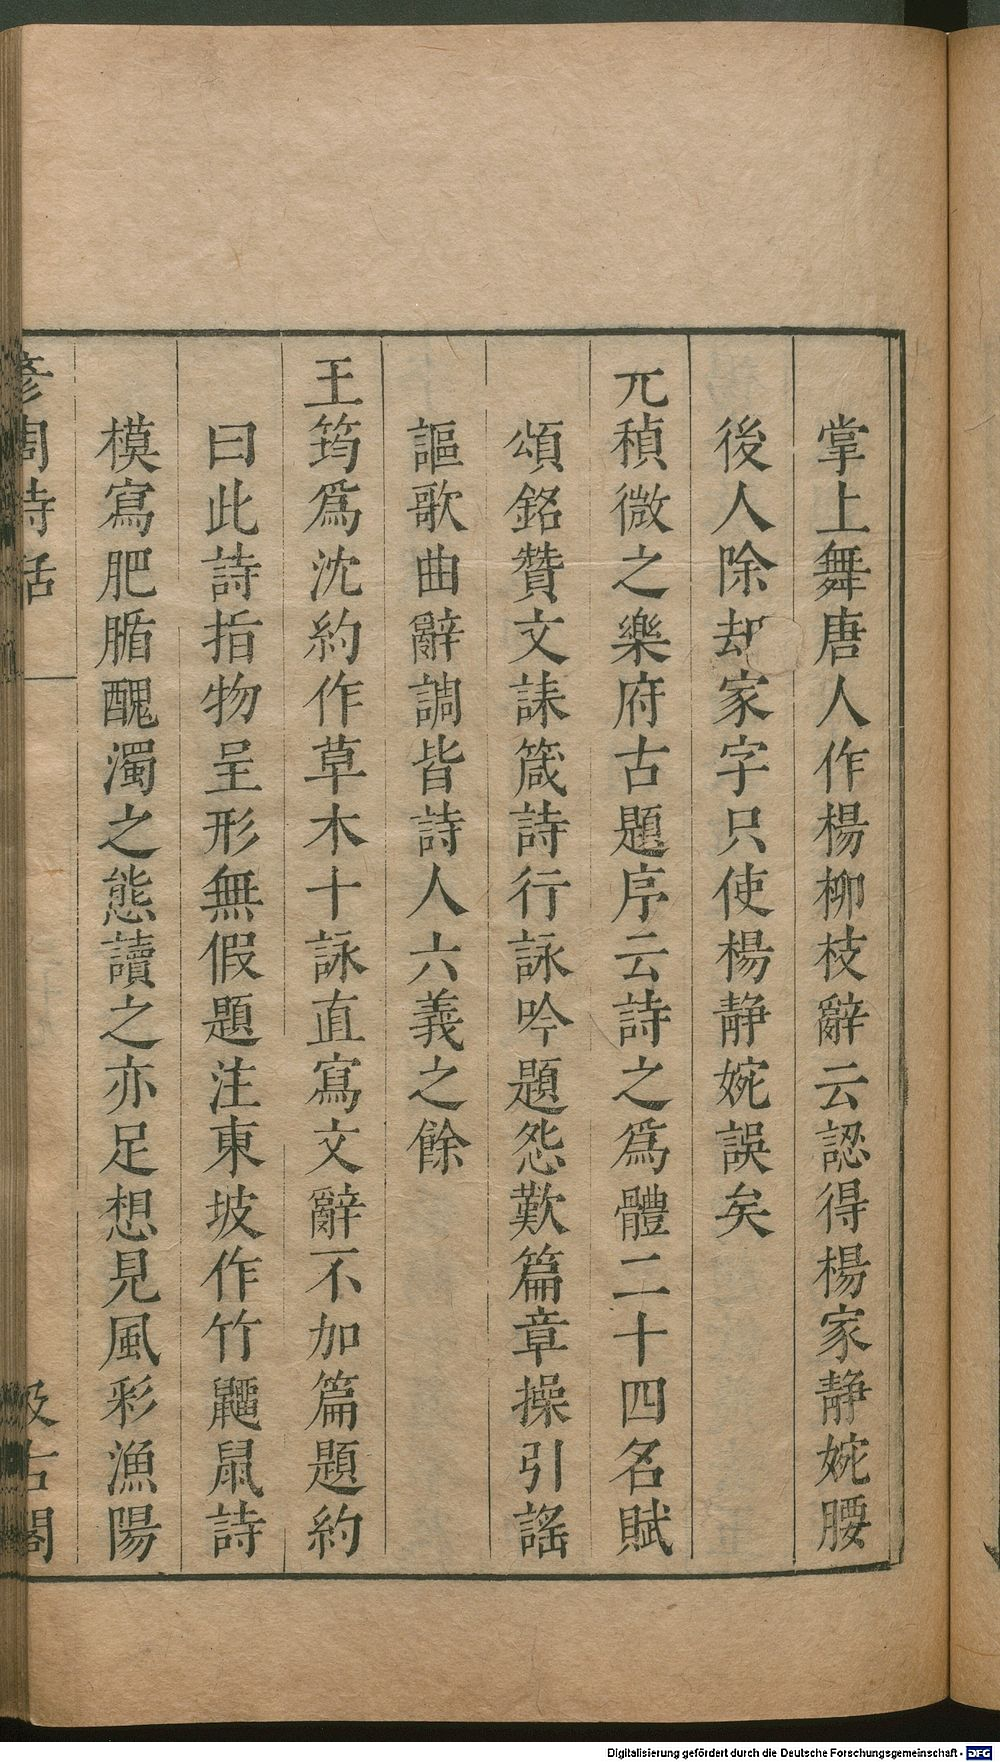 掌上舞唐人作楊柳枝辭云認得楊家静婉腰
後人除却家字只使楊静婉誤矣
元稹微之樂府古題序云詩之爲體二十四名賦
頌銘贊文誄箴詩行詠吟題怨歎篇章操引謠
謳歌曲辭調皆詩人六義之餘
王筠爲沈約作草木十詠直寫文辭不加篇題約
曰此詩指物呈形無假題注東坡作竹䶉鼠詩
模寫肥腯醜濁之態讀之亦足想見風彩漁陽
彥周詩話
汲古閣
Digitalisierung gefördert durch die Deutsche Forschungsgemeinschaft - DFG